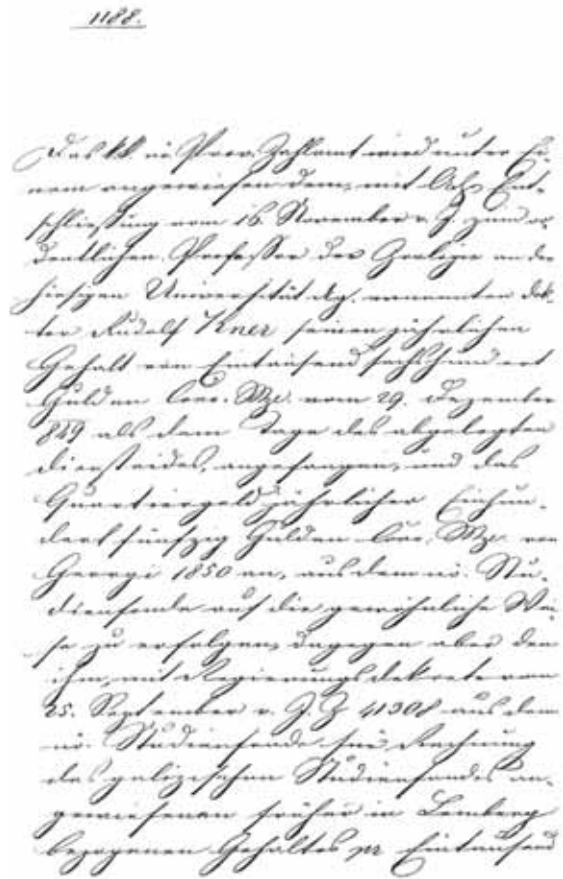 1188.
Das k.k. nö. Prov. Zahlamt wird unter Ei-
nem angewiesen dem, mit Ah. Ent-
schließung vom 16. November v. J. zum or-
dentlichen Professor der Zoologie an der
hiesigen Universität Ag. ernannten Dok-
tor Rudolf Kner seinen jährlichen
Gehalt von Eintausend sechshundert
Gulden Conv. Mze. vom 29. Dezember
849 als dem Tage des abgelegten
Diensteides, angefangen, und das
Quartiergeld jährlicher Einhun-
dert fünfzig Gulden Conv. Mze. von
Georgi 1850 an, aus dem nö. Stu-
dienfonde auf die gewöhnliche Wei-
se zu erfolgen, dagegen aber den
ihm, mit Regierungsdekrete vom
25. September v. J. Z. 41308 aus dem
nö. Studienfonde für Rechnung
des galizischen Studienfondes an-
gewiesenen früher in Lemberg
bezogenen Gehaltes pr Eintausend